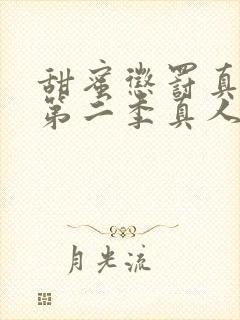 甜蜜惩罚真
第二季真人
月光流